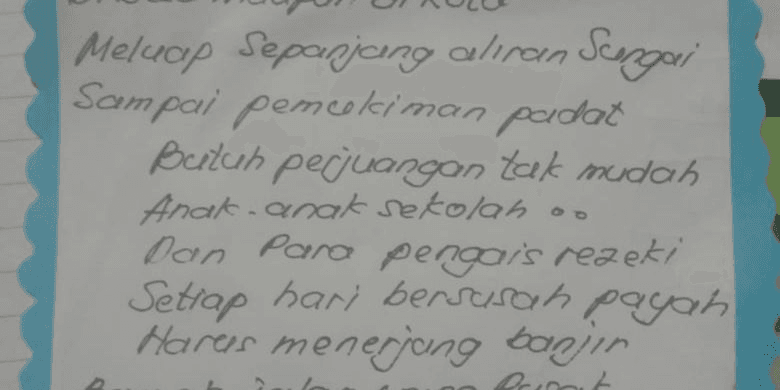 Meluap Sepanjang aliran Sungai
Sampai pemukiman padat
Butuh perjuangan tak mudah
Anak-anak sekolah ..
Dan Para pengais rezeki
Setiap hari bersusah payah
Harus menerjang banjir